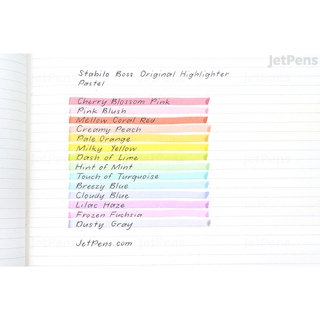 JetPens
Stabilo Boss Original Highlighter
Pastel
Cherry Blossom Pink
Pink Blush
Mellow Coral Red
Creamy Peach
Pale Orange
Milky Yellow
Dash of Lime
Hint of Mint
Touch of Turquoise
Breezy Blue
Cloudy Blue
Lilac Haze
Frozen Fuchsia
Dusty Gray
JetPens.com